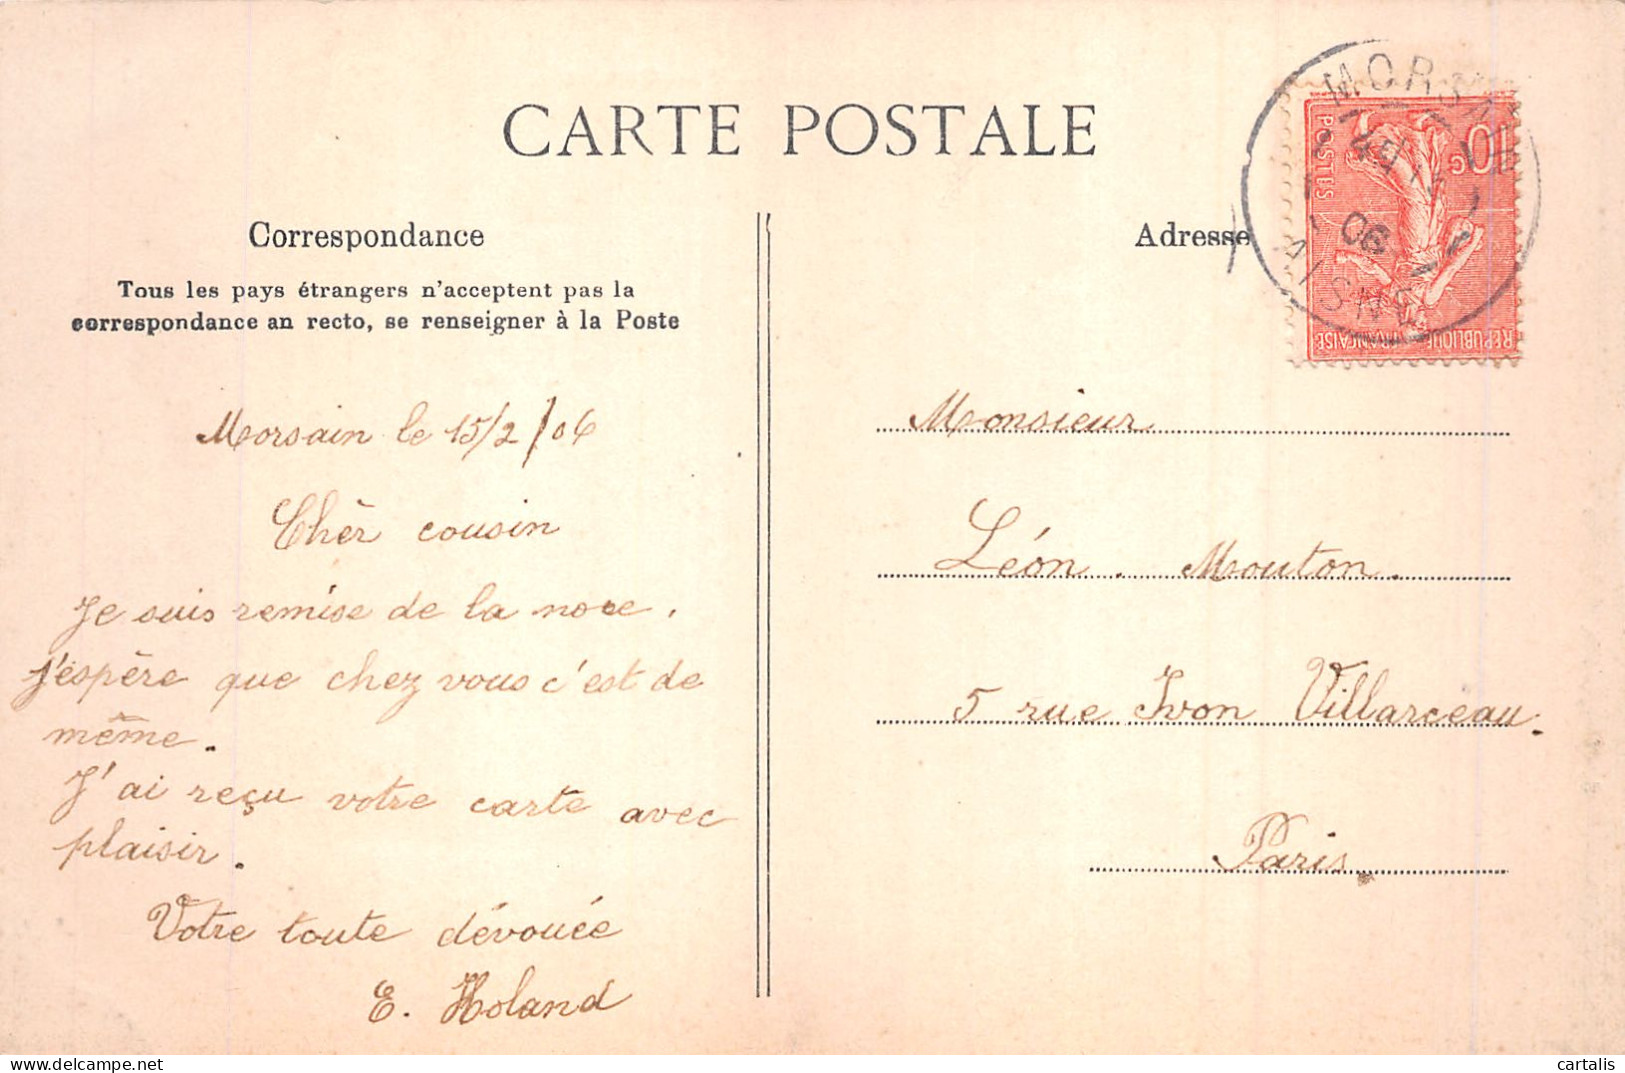 CARTE POSTALE
Correspondance
Tous les pays étrangers n'acceptent pas la
correspondance an recto, se renseigner à la Poste
Morsain le 15/2/06
Chèr cousin
Je suis remise de la noce.
j'espère que chez vous c'est de
même.
J'ai reçu votre carte avec
plaisir.
Votre toute dévouée
E. Holand
Adresse
Monsieur
Léon. Mouton.
5 rue Ivon Villarceau.
Paris
MORSAIN
06
AISNE
POSTES
10c
REPUBLIQUE FRANÇAISE
cartalis